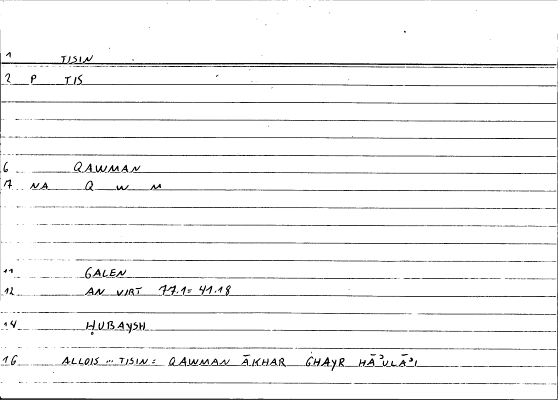 1 TISIN
2 P TIS
6 QAWMAN
17 NA Q W M
11 GALEN
12 AN VIRT 77.1= 41.18
14 ḤUBAYSH
16 ALLOIS ... TISIN = QAWMAN ĀKHAR GHAYR HĀʾULĀʾI